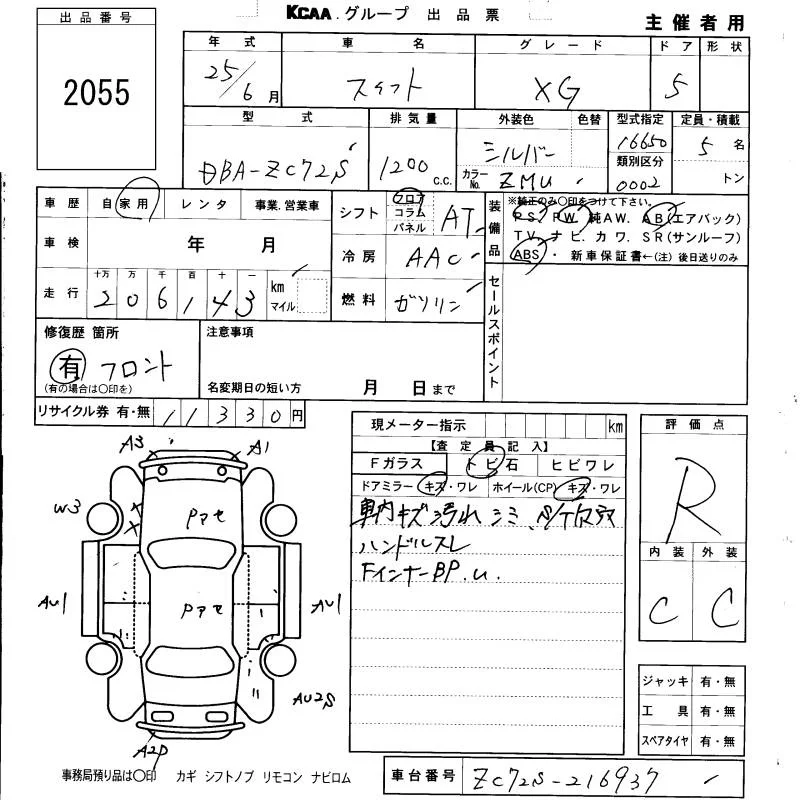 KCAA.グループ 出品票
主催者用
出品番号
2055
年式 車名 グレード ドア 形状
25/6月 スイフト XG 5
型式 排気量 外装色 色替 型式指定 定員・積載
DBA-ZC72S 1200 c.c. シルバー 16650 5名
カラーNo. ZMU 類別区分 0002 トン
車歴 自家用 レンタ 事業.営業車
シフト フロア コラム パネル AT
装備品
※純正のみ○印をつけて下さい。
P.S. P.W. 純A.W. A.B(エアバック)
T.V. ナビ. カワ. SR(サンルーフ)
ABS・ 新車保証書←(注)後日送りのみ
車検 年 月
冷房 AAC
走行 十万 万 千 百 十 一
206143 km マイル
燃料 ガソリン
セールスポイント
修復歴 箇所
有 フロント
(有の場合は○印を)
注意事項
名変期日の短い方 月 日まで
リサイクル券 有・無 11330円
現メーター指示 km
【査定員記入】
Fガラス トビ石 ヒビワレ
ドアミラー キズ・ワレ ホイール(CP) キズ・ワレ
車内キズ汚れ シミ
ハンドルスレ
FインナーBP.U.
評価点
R
内装 外装
C C
A3 A1
W3
Pアセ
Pアセ
AU1 AU1
AU2S
A2P
ジャッキ 有・無
工具 有・無
スペアタイヤ 有・無
事務局預り品は○印 カギ シフトノブ リモコン ナビロム
車台番号 ZC72S-216937